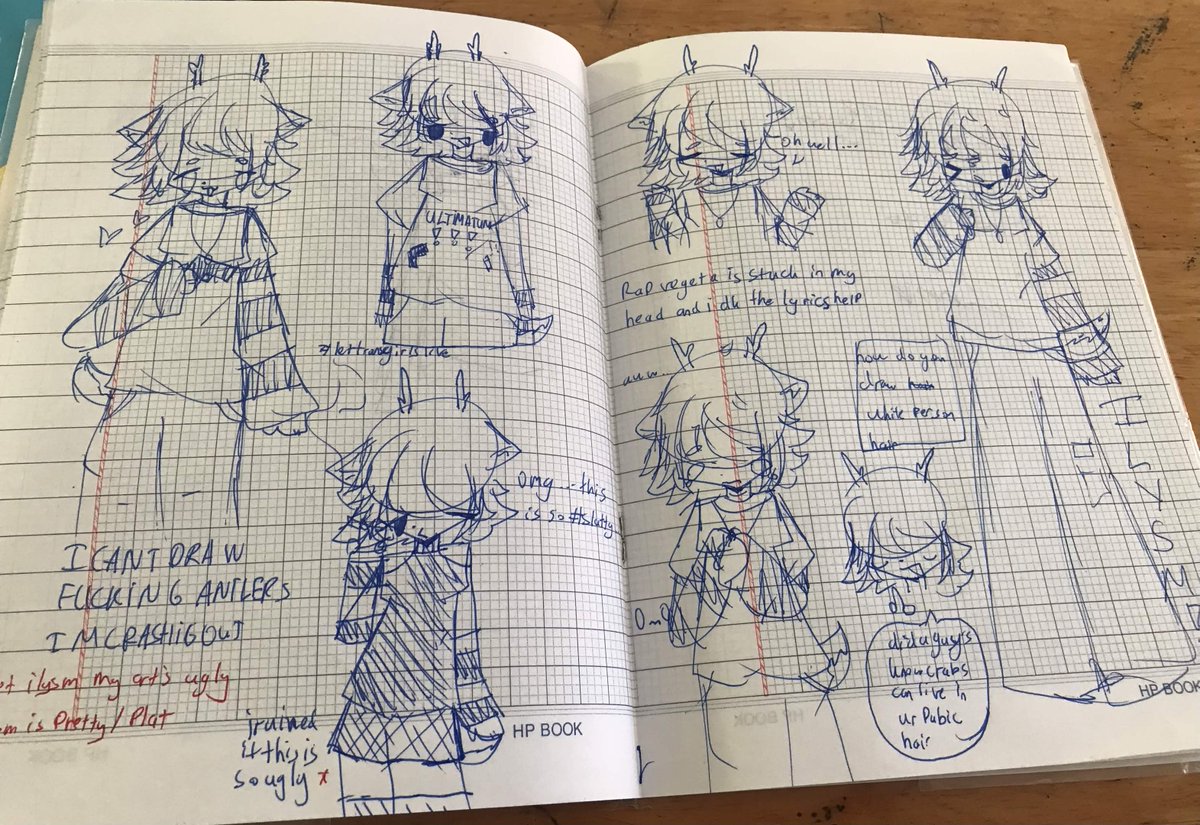 ULTIMATUM
#lettransgirlslive
Omg... this
is so #slutty
I CANT DRAW
FUCKING ANTLERS
IM CRASHIG OUT
ilysm my art's ugly
is pretty/Plat
i ruined
it this is
so ugly x
HP BOOK
oh well...
Rap vegeta is stuck in my
head and i dk the lyrics help
auw...
how do you
draw
white person
hair
Omg
did u guys
know crabs
can live in
ur Pubic
hair
ILYSM
HP BOOK